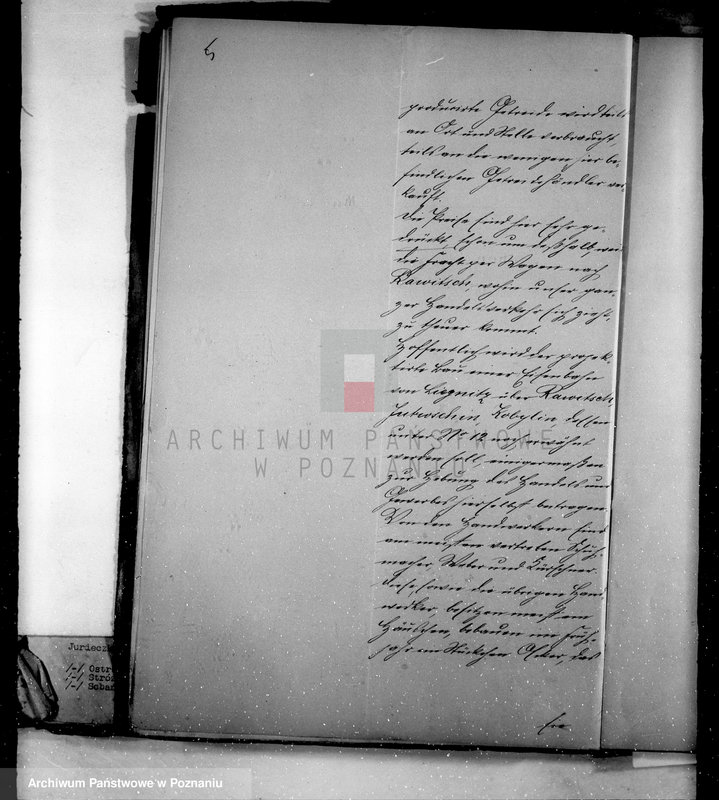 5
producirte Getreide wird teils
an Ort und Stelle verbraucht,
teils an die wenigen hier be-
findlichen Getreidehändler ver-
kauft.
Die Preise sind hier sehr ge-
drückt, schon um deßhalb, weil
die Fracht per Wagen nach
Rawitsch, wohin unser gan-
zer Handelsverkehr sich zieht,
zu theuer kommt.
Hoffentlich wird der projek-
tirte Bau einer Eisenbahn
von Liegnitz über Rawitsch
Jutroschin, Kobylin dessen
unter No 12 noch erwähnt
werden soll, einigermaßen
zur Hebung des Handels und
Gewerbes hierselbst betragen.
Von den Handwerkern sind
am meisten vertreten Schuh-
macher, Weber und Kürschner.
Diese, sowie die übrigen Hand
werker, besitzen meist ein
Häuschen, bebauen im Früh-
jahr ein Stückchen Acker, das
ARCHIWUM PAŃSTWOWE
W POZNANIU
Jurieczk
/-/ Ostr
/-/ Stró
/-/ Sobań
Archiwum Państwowe w Poznaniu